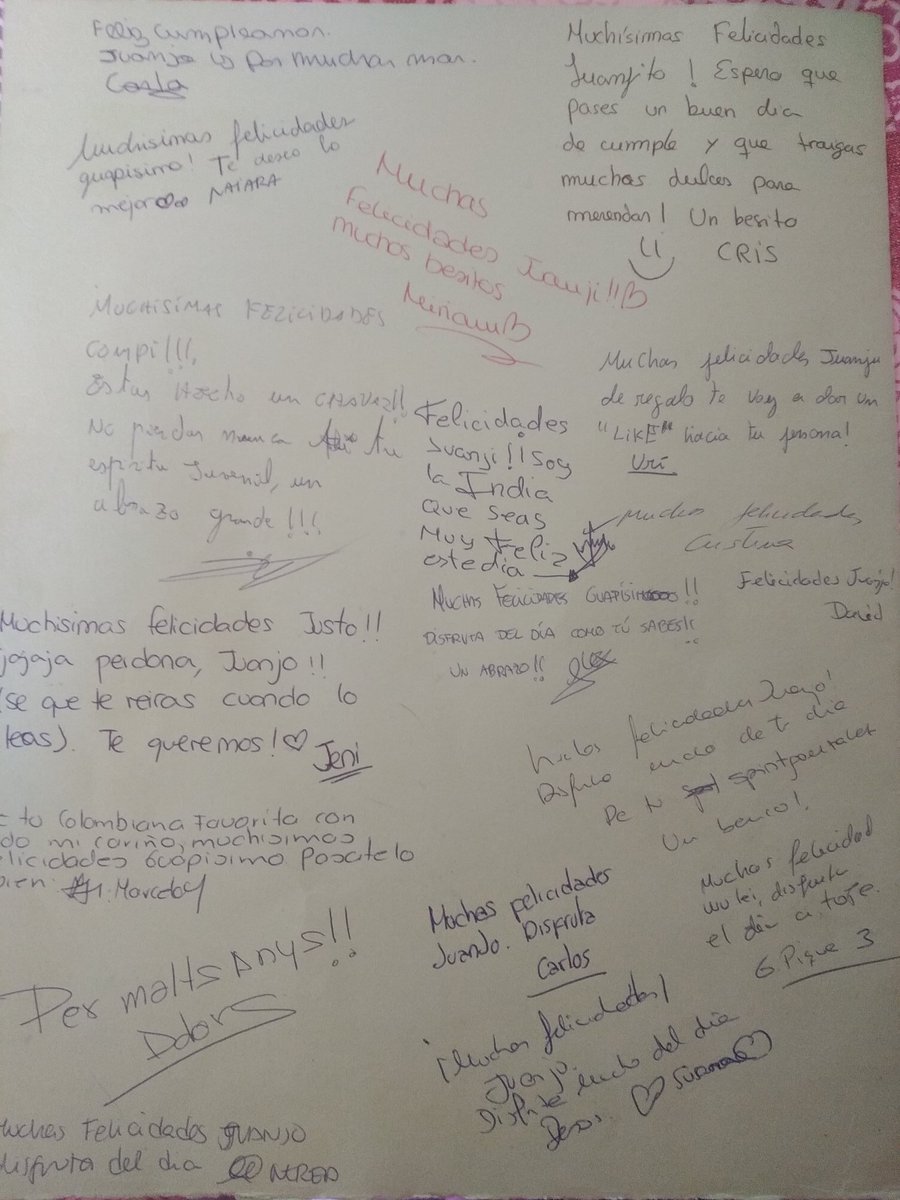 Feliz cumpleaños.
Juanjo y por muchos mas.
Carla
Muchisimas felicidades
guapisimo! Te deseo lo
mejor NAIARA
Muchísimas Felicidades
Juanjito! Espero que
pases un buen dia
de cumple y que traigas
muchos dulces para
merendar! Un besito
CRIS
Muchas
Felicidades Juanji!!
muchos besitos
Miriam
MUCHISIMAS FELICIDADES
COMPI!!!,
Estas Hecho un CHAVAL!!
No pierdas nunca tu
espiritu Juvenil, un
abrazo grande!!!
Muchas felicidades Juanju
de regalo te voy a dar un
"LIKE" hacia tu persona!
Uri
Felicidades
Juanji!! Soy
la India
que seas
Muy Feliz
este dia
Muchas felicidades
Cristina
Felicidades Juanjo!
David
MUCHAS FELICIDADES GUAPÍSIMO!!
DISFRUTA DEL DÍA COMO TÚ SABES!!
UN ABRAZO!! Alex
Muchisimas felicidades Justo!!
jajaja perdona, Juanjo!!
(se que te reiras cuando lo
leas). Te queremos! ♡
Jeni
felicidades
Disfruta mucho de tu dia
De tu
Un
tu Colombiana Favorita con
do mi cariño, muchisimas
elicidades Guapisimo Pasatelo
bien
Muchas felicidades
Juando. Disfruta
Carlos
Muchas felicidad
disfruta
el dia a tope.
G. Pique 3
Per molts Anys!!
Dolors
¡Muchas felicidades!
Juanjo.
Disfruta mucho del dia
Besos. ♡ Susana ♡
Muchas Felicidades JUANJO
disfruta del dia NEREA